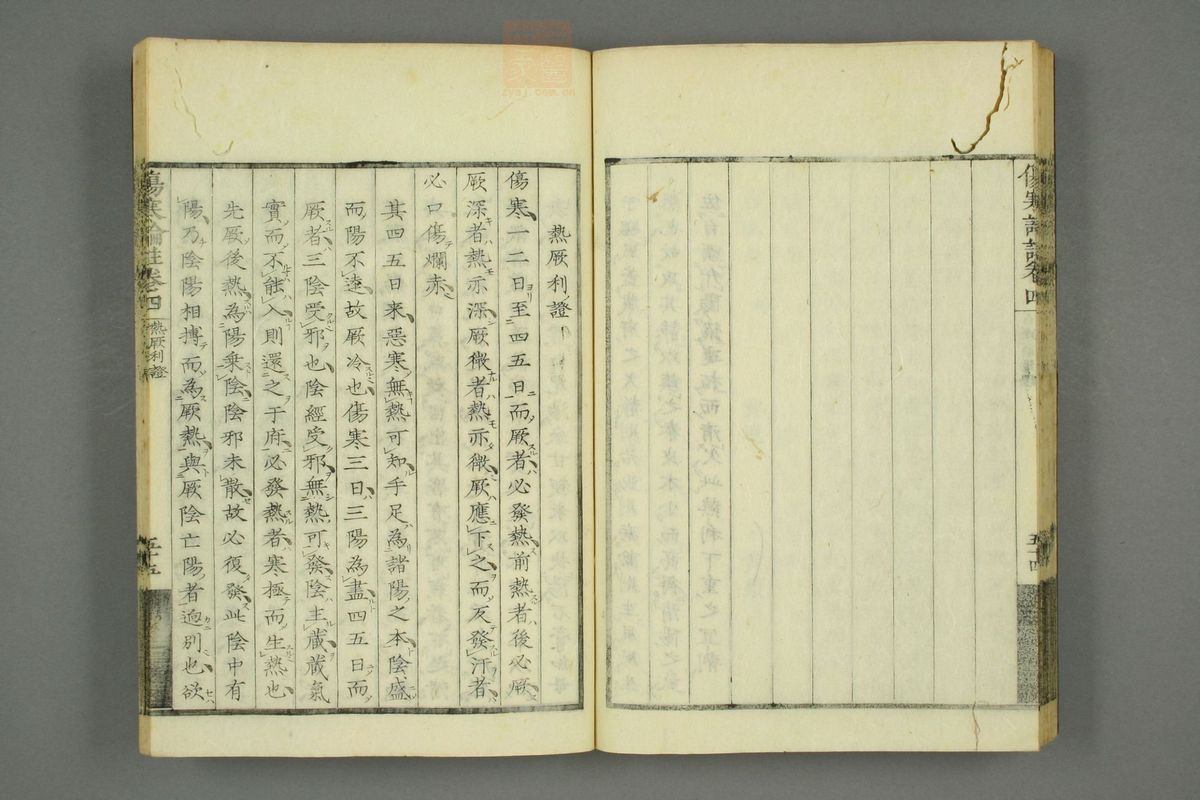 傷寒論註卷四
五十四
熱厥利證
傷寒一二日至四五日而厥者必發熱前熱者後必厥
厥深者熱亦深厥微者熱亦微厥應下之而反發汗者
必口傷爛赤
其四五日來惡寒無熱可知手足為諸陽之本陰盛
而陽不達故厥冷也傷寒三日三陽為盡四五日而
厥者三陰受邪也陰經受邪無熱可發陰主藏藏氣
實而不能入則還之于府必發熱者寒極而生熱也
先厥後熱為陽乘陰陰邪未散故必復發此陰中有
陽乃陰陽相搏而為厥熱與厥陰亡陽者迥別也欲
傷寒論註卷四
熱厥利證
五十五
zysj.com.cn